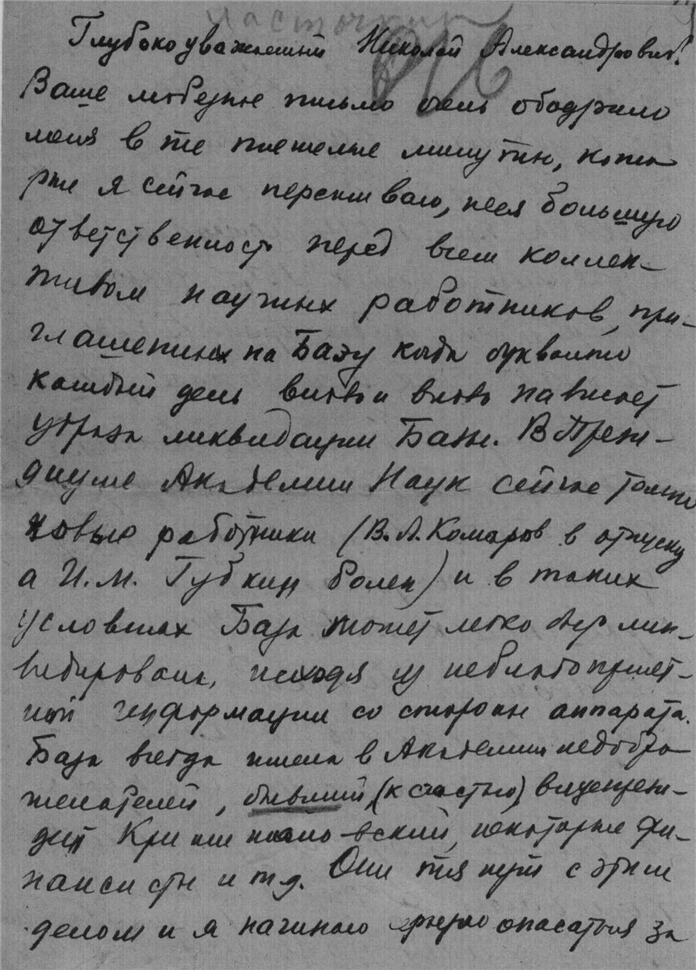 Глубокоуважаемый Николай Александрович!
Ваше любезное письмо очень ободрило
меня в те тяжелые минуты, кото
рые я сейчас переживаю, неся большую
ответственность перед всем коллек-
тивом научных работников, при-
глашенных на Базу когда буквально
каждый день вновь и вновь нависает
угроза ликвидации Базы. В Прези-
диуме Академии Наук сейчас только
новые работники (В.Л. Комаров в отпуску
а И.М. Губкин болен) и в таких
условиях База может легко быть лик-
видирована, исходя из неблагоприят-
ной информации со стороны аппарата.
База всегда имела в Академии недобро
желателей, бывший (к счастью) вицепрези-
дент Кржижановский, некоторые фи-
нансисты и т.д. Они тянут с этим
делом и я начинаю опасаться за